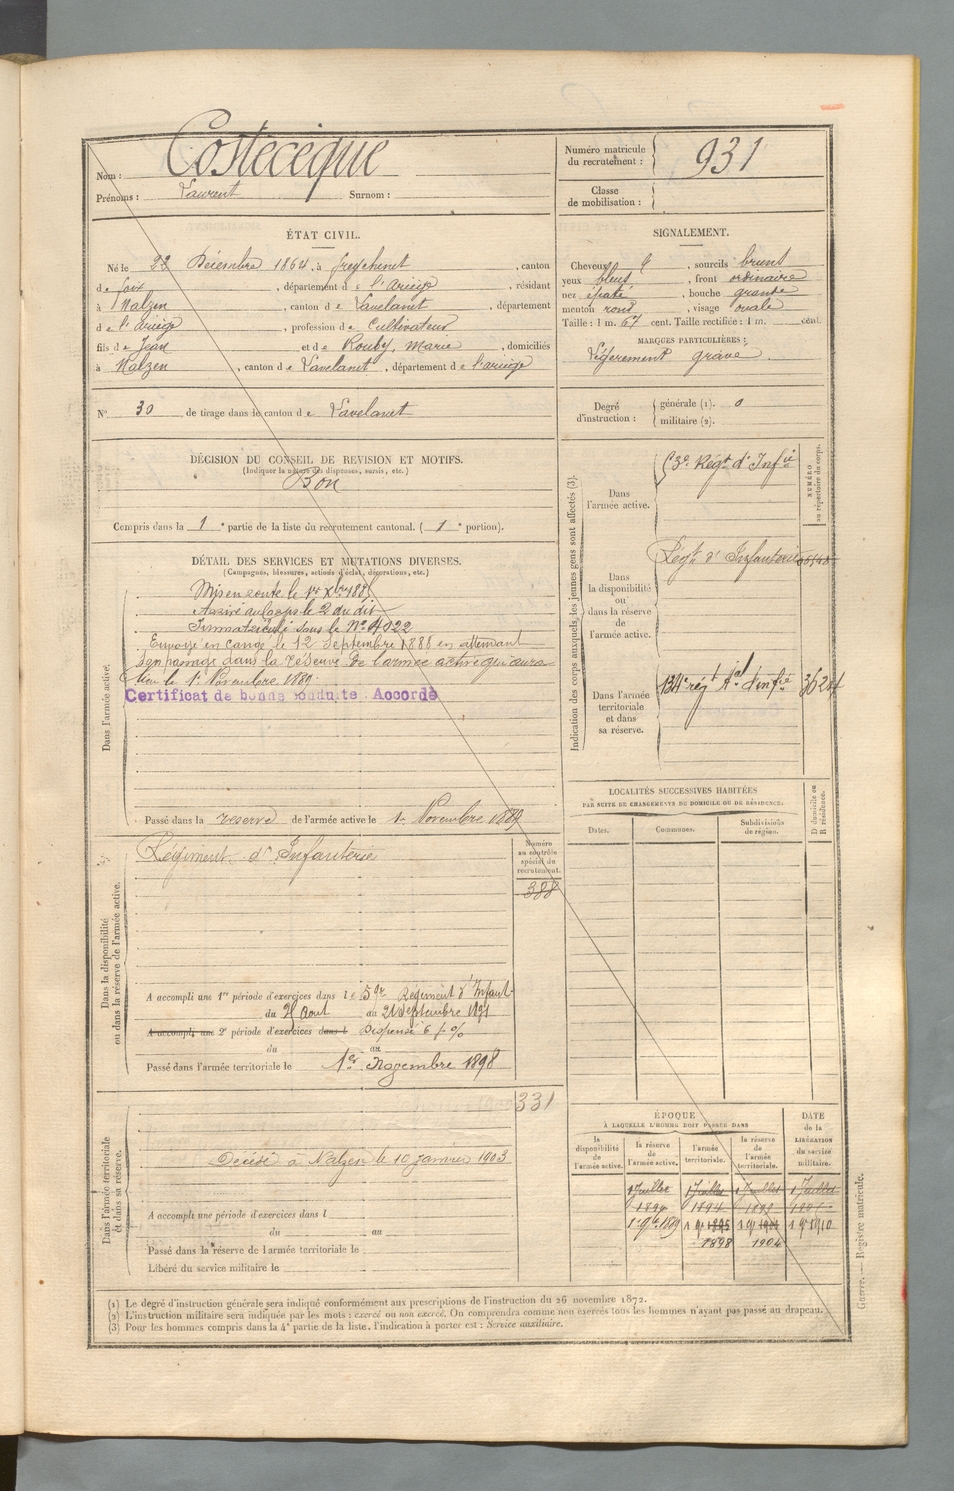 Nom : Costecèque
Prénoms : Laurent Surnom :
Numéro matricule du recrutement : 931
Classe de mobilisation :
ÉTAT CIVIL.
Né le 22 Décembre 1864, à Freychenet, canton
de Foix, département de l'Ariège, résidant
à Nalzen, canton de Lavelanet, département
de l'Ariège, profession de Cultivateur
fils de Jean et de Rouby, Marie, domiciliés
à Nalzen, canton de Lavelanet, département de l'ariège
N° 30 de tirage dans le canton de Lavelanet
SIGNALEMENT.
Cheveux et, sourcils bruns
yeux bleus, front ordinaire
nez épaté, bouche grande
menton rond, visage ovale
Taille : 1 m. 67 cent. Taille rectifiée : 1 m. cent.
MARQUES PARTICULIÈRES :
Légèrement gravé
Degré d'instruction : générale (1). 0
militaire (2).
DÉCISION DU CONSEIL DE REVISION ET MOTIFS.
(Indiquer la nature des dispenses, sursis, etc.)
Bon
Compris dans la 1e partie de la liste du recrutement cantonal. (1e portion).
DÉTAIL DES SERVICES ET MUTATIONS DIVERSES.
(Campagnes, blessures, actions d'éclat, décorations, etc.)
Dans l'armée active.
Mis en route le 1er Xbre 1885
Arrivé au Corps le 2 du dit
Immatriculé sous le N° 4022
Envoyé en Congé le 12 Septembre 1888 en attendant
son passage dans la réserve de l'armée active qui aura
lieu le 1er Novembre 1889
Certificat de bonne conduite Accordé
Passé dans la reserve de l'armée active le 1er Novembre 1889
Dans la disponibilité ou dans la réserve de l'armée active.
Régiment d'Infanterie
Numéro au contrôle spécial du recrutement.
388
A accompli une 1re période d'exercices dans le 59e Régiment d'Infant.
du Août au 21 Septembre 1891
A accompli une 2e période d'exercices dans l Dispensé 6 p %
du au
Passé dans l'armée territoriale le 1er Novembre 1898
Dans l'armée territoriale et dans sa réserve.
331
Décédé à Nalzen le 10 janvier 1903
A accompli une période d'exercices dans l
du au
Passé dans la réserve de l'armée territoriale le
Libéré du service militaire le
Indication des corps auxquels les jeunes gens sont affectés (3).
NUMÉRO au répertoire du corps.
Dans l'armée active.
Régt d'Infie
Dans la disponibilité ou dans la réserve de l'armée active.
Régt d'Infanterie
Dans l'armée territoriale et dans sa réserve.
134e rég t al d'infie
LOCALITÉS SUCCESSIVES HABITÉES
PAR SUITE DE CHANGEMENTS DU DOMICILE OU DE RÉSIDENCE.
Dates. Communes. Subdivisions de région. D domicile ou R résidence.
ÉPOQUE
À LAQUELLE L'HOMME DOIT PASSER DANS
DATE de la LIBÉRATION du service militaire.
la disponibilité de l'armée active. la réserve de l'armée active. l'armée territoriale. la réserve de l'armée territoriale.
1 Juillet 1 Juillet 1 Juillet 1 Juillet
1 9bre 1889 1 9 1895 1 9 1 9 1910
1898 1904
(1) Le degré d'instruction générale sera indiqué conformément aux prescriptions de l'instruction du 26 novembre 1872.
(2) L'instruction militaire sera indiquée par les mots : exercé ou non exercé. On comprendra comme non exercés tous les hommes n'ayant pas passé au drapeau.
(3) Pour les hommes compris dans la 4e partie de la liste, l'indication à porter est : Service auxiliaire.
Guerre. — Registre matricule.